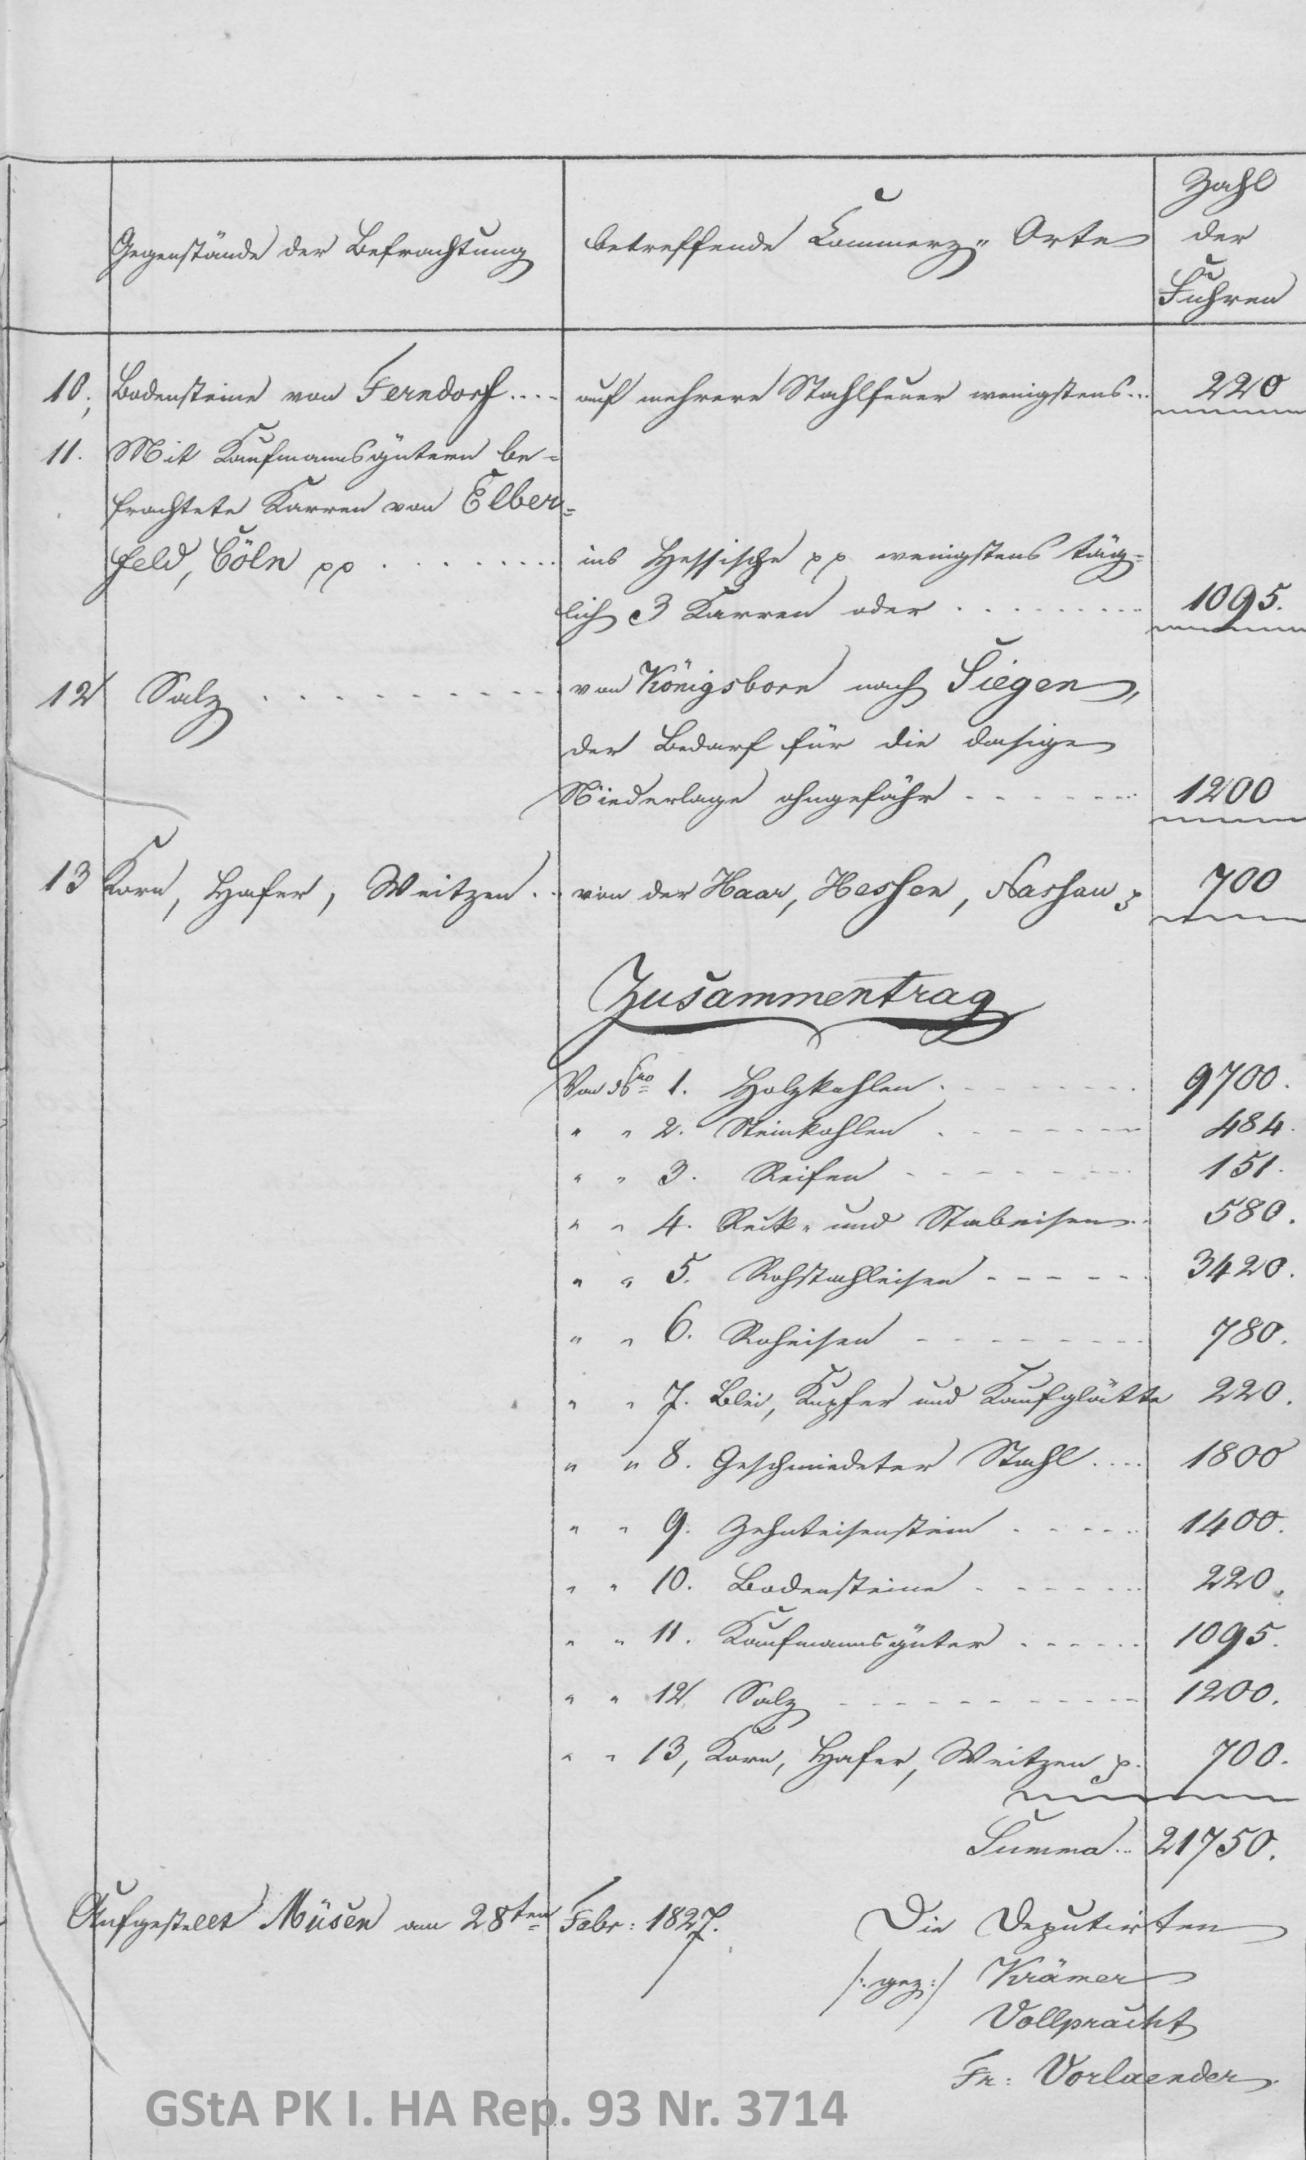 Gegenstände der Befrachtung
betreffende Commerz-Orte
Zahl
der
Fuhren
10. Bodensteine von Ferndorf .... auf mehrere Stahlfeuer wenigstens ... 220
11. Mit Kaufmannsgütern be-
frachtete Karren von Elber-
feld, Cöln pp ......... ins Hessische pp wenigstens täg-
lich 3 Karren oder ......... 1095.
12 Salz .......... von Königsborn nach Siegen,
der Bedarf für die dasige
Niederlage ohngefähr ...... 1200
13 Korn, Hafer, Weitzen .. von der Haar, Hessen, Nassau p 700
Zusammentrag
Von No 1. Holzkohlen ....... 9700.
" " 2. Steinkohlen ....... 484.
" " 3. Reifen ....... 151.
" " 4. Reck- und Stabeisen .. 580.
" " 5. Rohstahleisen ...... 3420.
" " 6. Roheisen ........ 780.
" " 7. Blei, Kupfer und Kaufglätte 220.
" " 8. Geschmiedeter Stahl .... 1800
" " 9. Zehnteisenstein ..... 1400.
" " 10. Bodensteine ...... 220.
" " 11. Kaufmannsgüter ...... 1095.
" " 12 Salz ........... 1200.
" " 13, Korn, Hafer, Weitzen p. 700.
Summa .. 21750.
Aufgestellt Müsen am 28ten Febr: 1827.
Die Deputirten
/: gez :/ Krämer
Vollpracht
Fr: Vorlaender
GStA PK I. HA Rep. 93 Nr. 3714